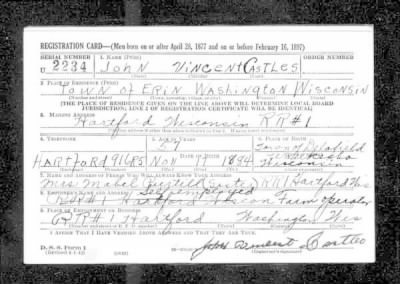 REGISTRATION CARD—(Men born on or after April 28, 1877 and on or before February 16, 1897)
SERIAL NUMBER 1. NAME (Print) ORDER NUMBER
U 2234 John Vincent Castles
(First) (Middle) (Last)
2. PLACE OF RESIDENCE (Print)
Town of Erin Washington Wisconsin
(Number and street) (Town, township, village, or city) (County) (State)
[THE PLACE OF RESIDENCE GIVEN ON THE LINE ABOVE WILL DETERMINE LOCAL BOARD
JURISDICTION; LINE 2 OF REGISTRATION CERTIFICATE WILL BE IDENTICAL]
3. MAILING ADDRESS
Hartford Wisconsin RR#1
4. TELEPHONE 5. AGE IN YEARS 6. PLACE OF BIRTH
Town of Delafield
HARTFORD 916R5 Nov 17 1894 Wisconsin
7. NAME AND ADDRESS OF PERSON WHO WILL ALWAYS KNOW YOUR ADDRESS
Mrs Mabel RR1 Hartford Wis
8. EMPLOYER'S NAME AND ADDRESS
RR#1 Hartford Farm operator
9. PLACE OF EMPLOYMENT OR BUSINESS
RR#1 Hartford Washington Wis
I AFFIRM THAT I HAVE VERIFIED ABOVE ANSWERS AND THAT THEY ARE TRUE.
D. S. S. Form 1
(Revised 4-1-42) (over)
John Vincent Castles